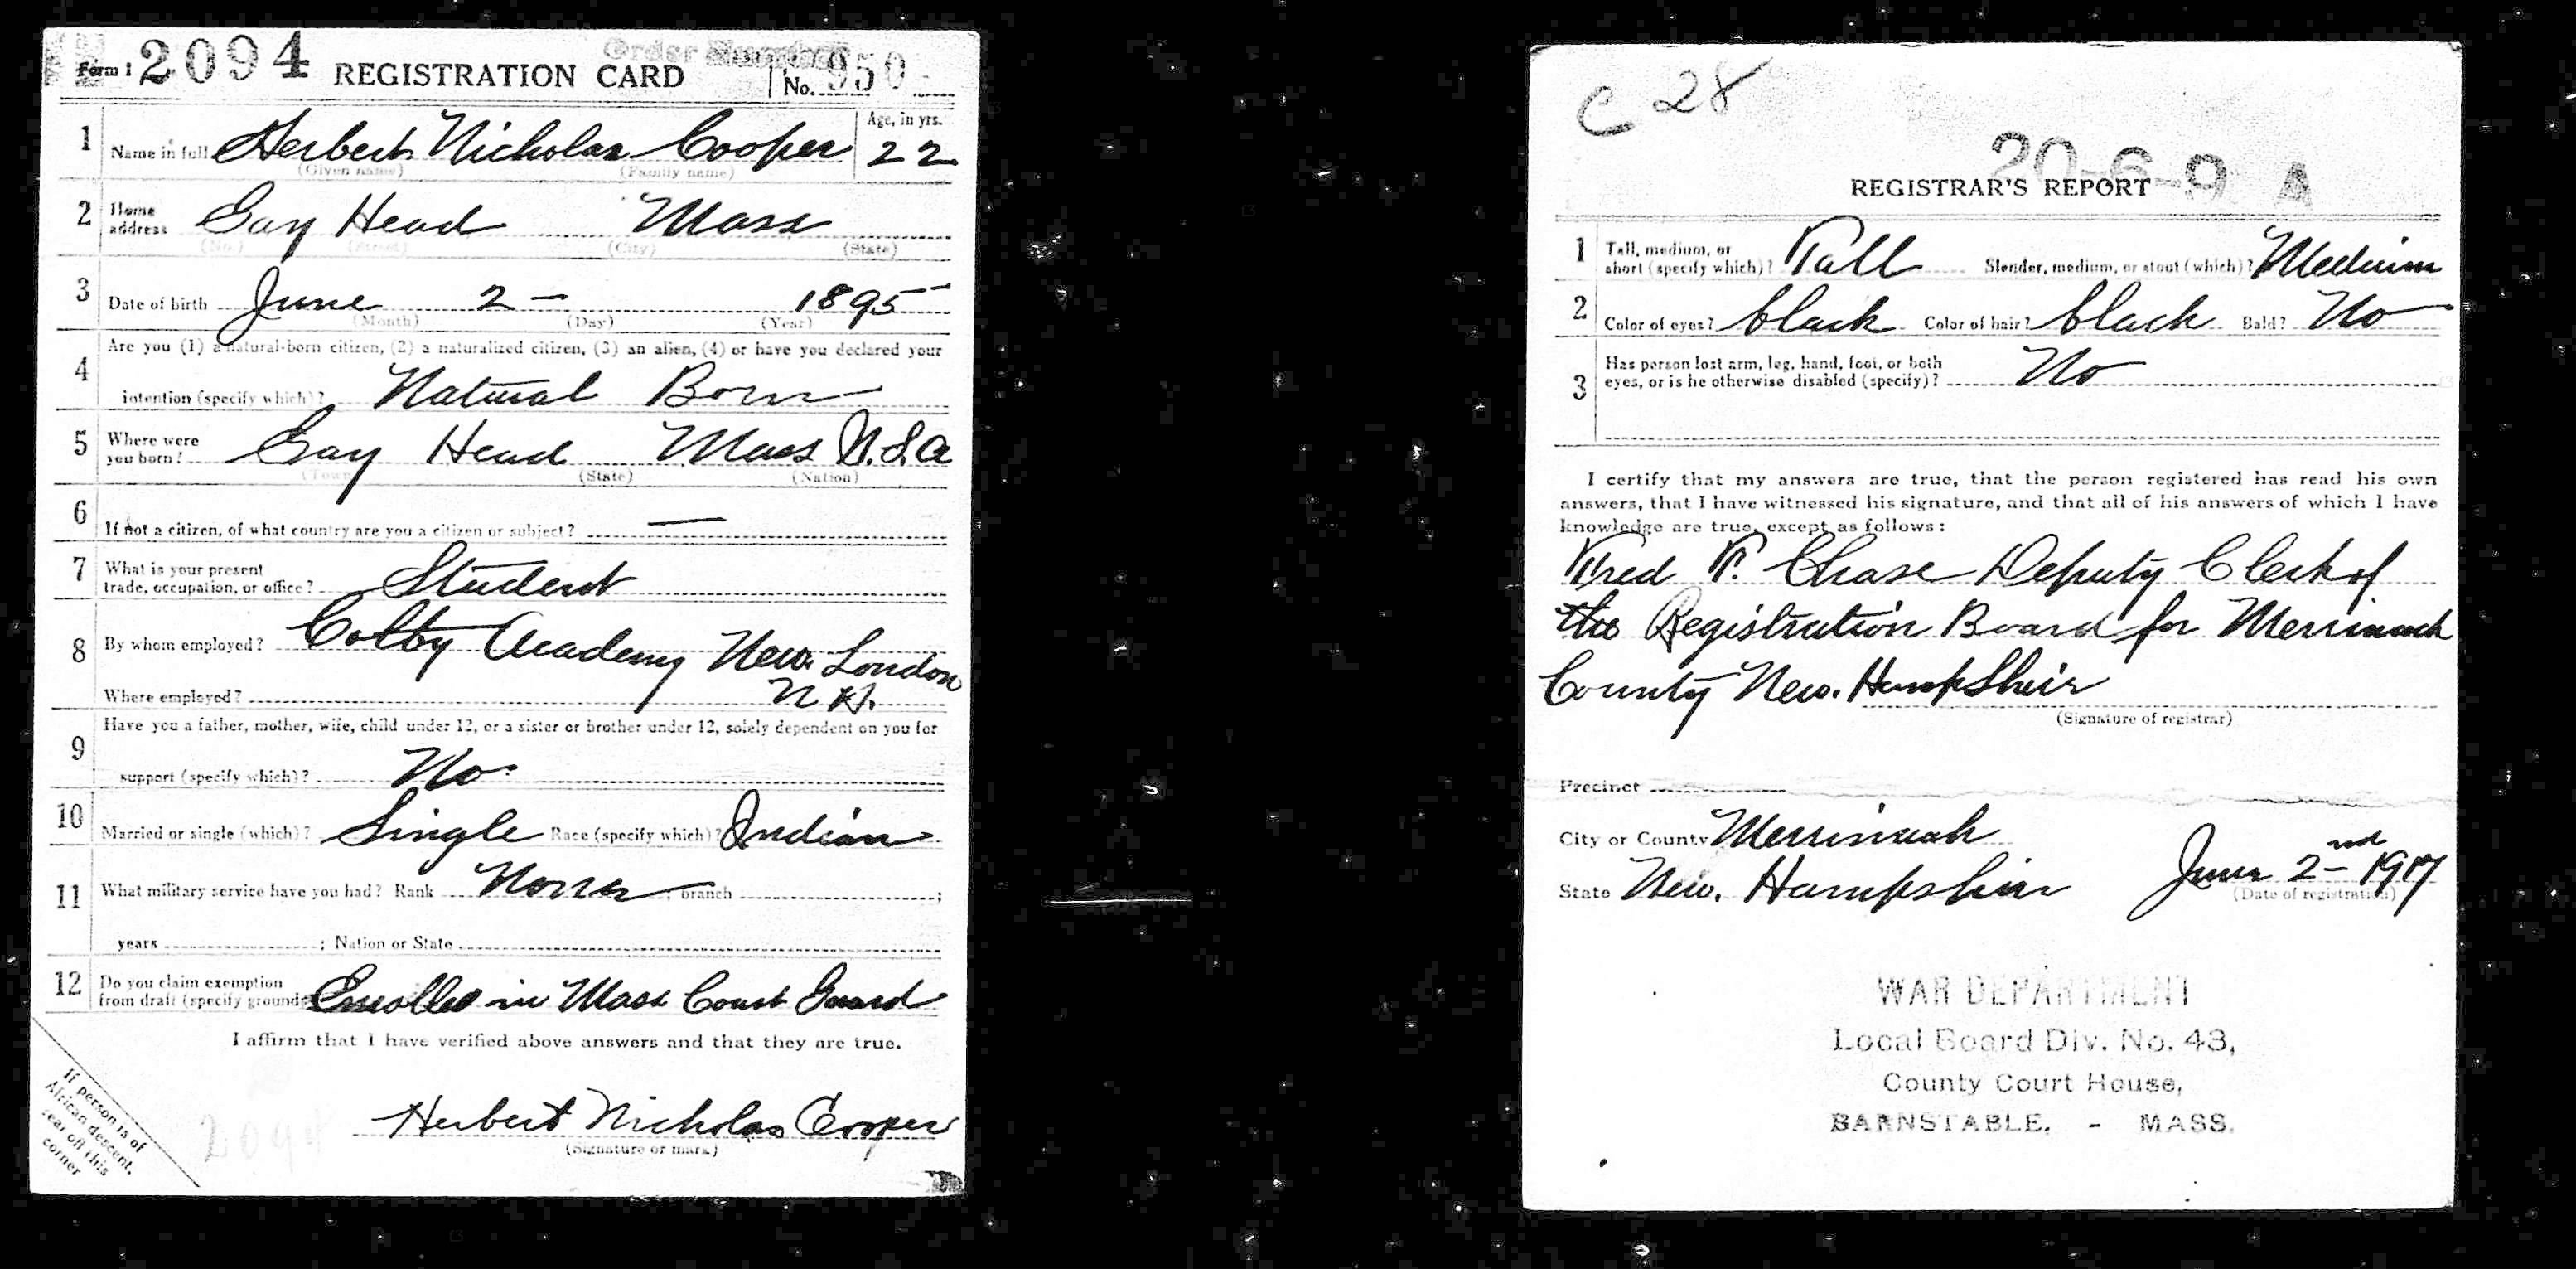 Form 1 2094 REGISTRATION CARD Order Number No. 950
1 Name in full Herbert Nicholas Cooper Age, in yrs. 22
(Given name) (Family name)
2 Home address Gay Head Mass
(No.) (Street) (City) (State)
3 Date of birth June 2 – 1895
(Month) (Day) (Year)
4 Are you (1) a natural-born citizen, (2) a naturalized citizen, (3) an alien, (4) or have you declared your
intention (specify which)? Natural Born
5 Where were you born? Gay Head Mass U.S.A
(Town) (State) (Nation)
6 If not a citizen, of what country are you a citizen or subject? —
7 What is your present trade, occupation, or office? Student
8 By whom employed? Colby Academy New London
Where employed? N.H.
9 Have you a father, mother, wife, child under 12, or a sister or brother under 12, solely dependent on you for
support (specify which)? No
10 Married or single (which)? Single Race (specify which)? Indian
11 What military service have you had? Rank None ; branch ;
years ; Nation or State
12 Do you claim exemption from draft (specify grounds)? Enrolled in Mass Coast Guard
I affirm that I have verified above answers and that they are true.
Herbert Nicholas Cooper
(Signature or mark)
If person is of
African decent,
tear off this
corner
2094
C 28
20-6-9 A
REGISTRAR'S REPORT
1 Tall, medium, or short (specify which)? Tall Slender, medium, or stout (which)? Medium
2 Color of eyes? black Color of hair? black Bald? No
3 Has person lost arm, leg, hand, foot, or both
eyes, or is he otherwise disabled (specify)? No
I certify that my answers are true, that the person registered has read his own
answers, that I have witnessed his signature, and that all of his answers of which I have
knowledge are true, except as follows:
Fred T. Chase Deputy Clerk of
the Registration Board for Merrimack
County New. HampSheir
(Signature of registrar)
Precinct
City or County Merrimack
State New. Hampshir June 2nd 1917
(Date of registration)
WAR DEPARTMENT
Local Board Div. No. 43,
County Court House,
BARNSTABLE, - MASS.